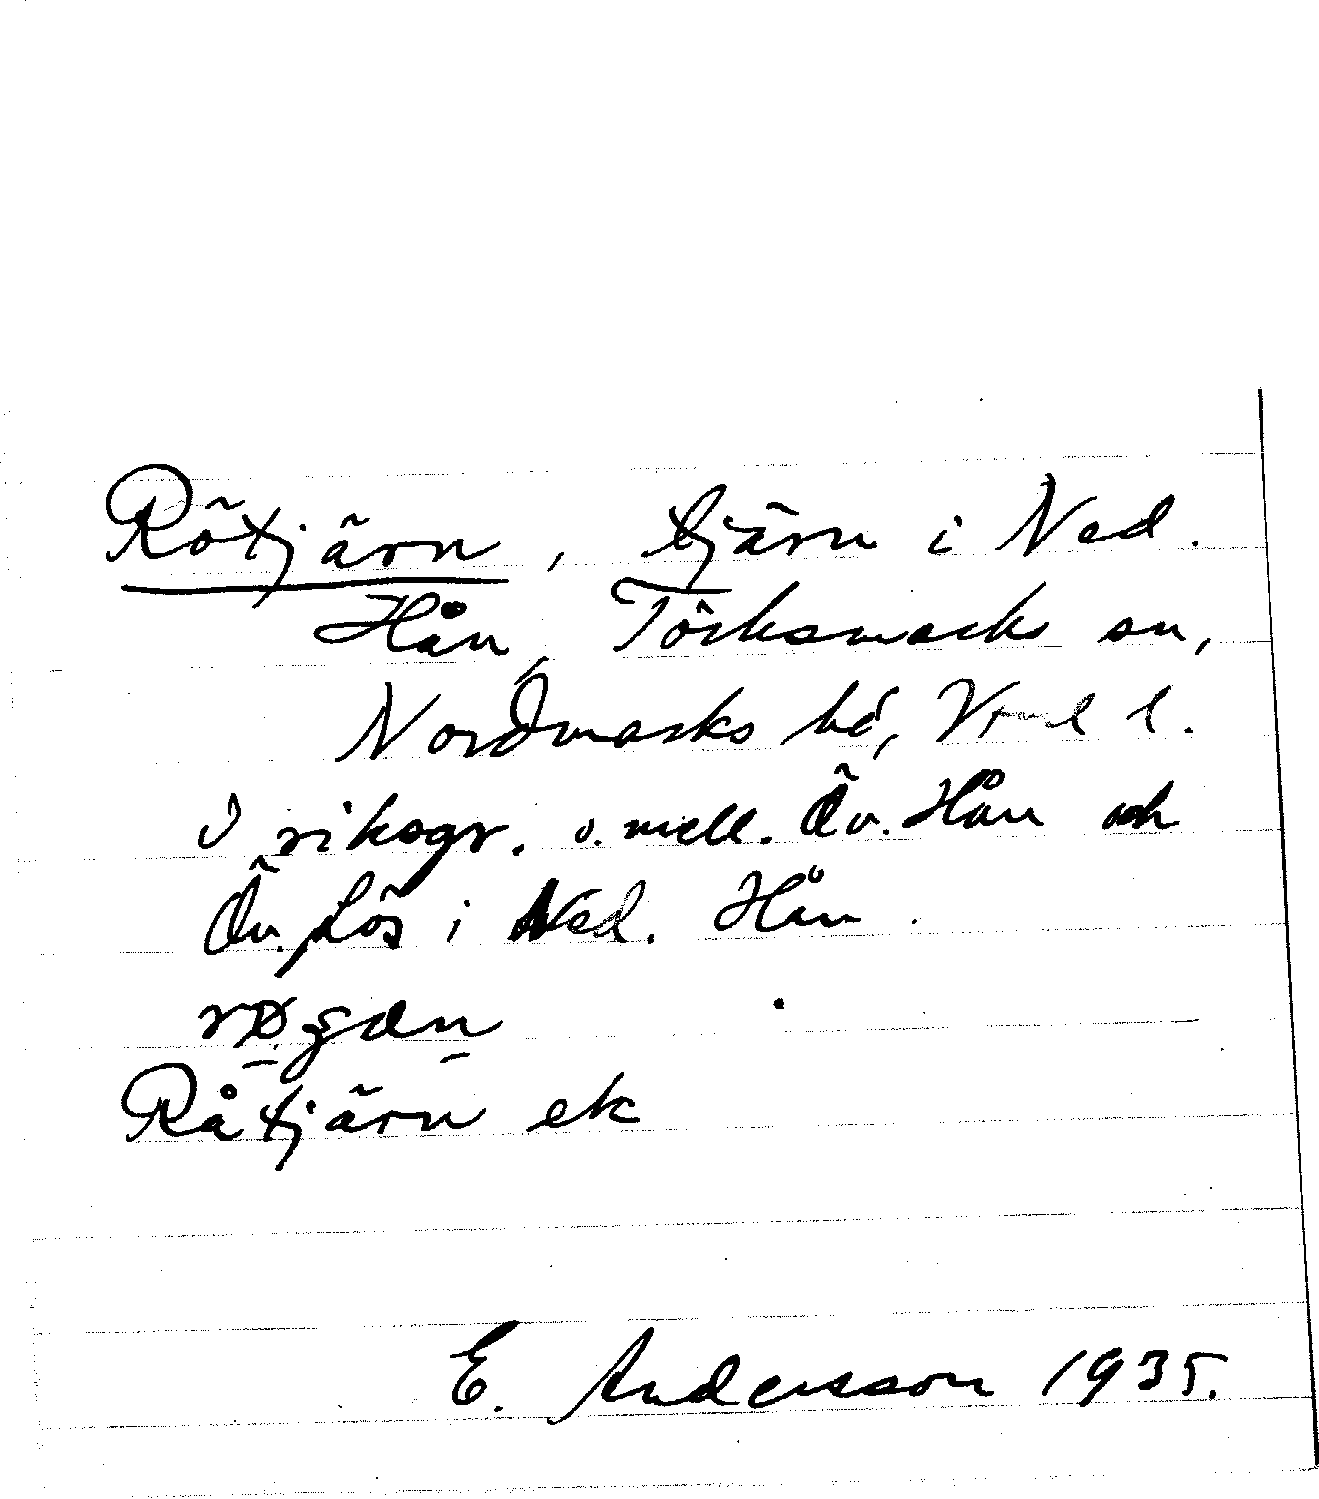 Rötjärn, tjärn i Ned.
Hån, Töcksmarks sn,
Nordmarks hd, Vrml l.
I riksgr. o. mell. Öv. Hån och
Öv. Lös i Ned. Hån.
Råtjärn ek
E. Andersson 1935.